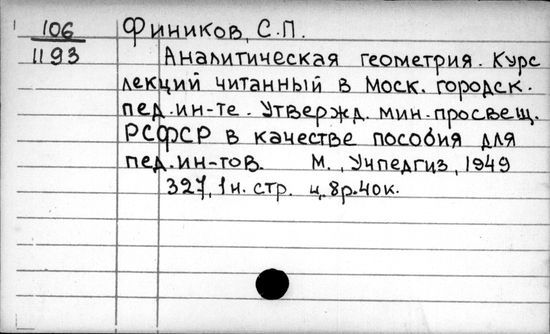 106 Фиников, С.П.
1193 Аналитическая геометрия. Курс
лекций читанный в Моск. городск.
пед. ин-те. Утвержд. мин. просвещ.
РСФСР в качестве пособия для
пед. ин-тов. М., Учпедгиз, 1949
327, 1 н. стр. ц. 8р. 40к.